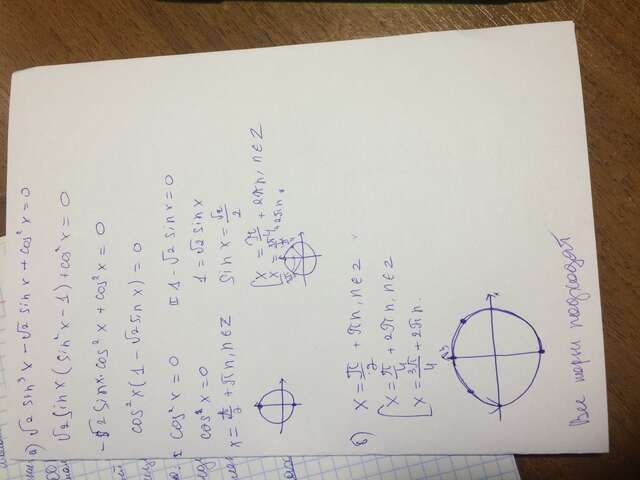 а) √2 sin³x - √2 sin x + cos²x = 0
√2 sin x (sin²x - 1) + cos²x = 0
-√2 sin x · cos²x + cos²x = 0
cos²x (1 - √2 sin x) = 0
cos²x = 0
cos²x = 0
x = π/2 + πn, n∈Z
1 - √2 sin x = 0
1 = √2 sin x
sin x = √2/2
x = π/4 + 2πn, n∈Z
x = 3π/4 + 2πn
б)
x = π/2 + πn, n∈Z
x = π/4 + 2πn, n∈Z
x = 3π/4 + 2πn.
Все корни подходят